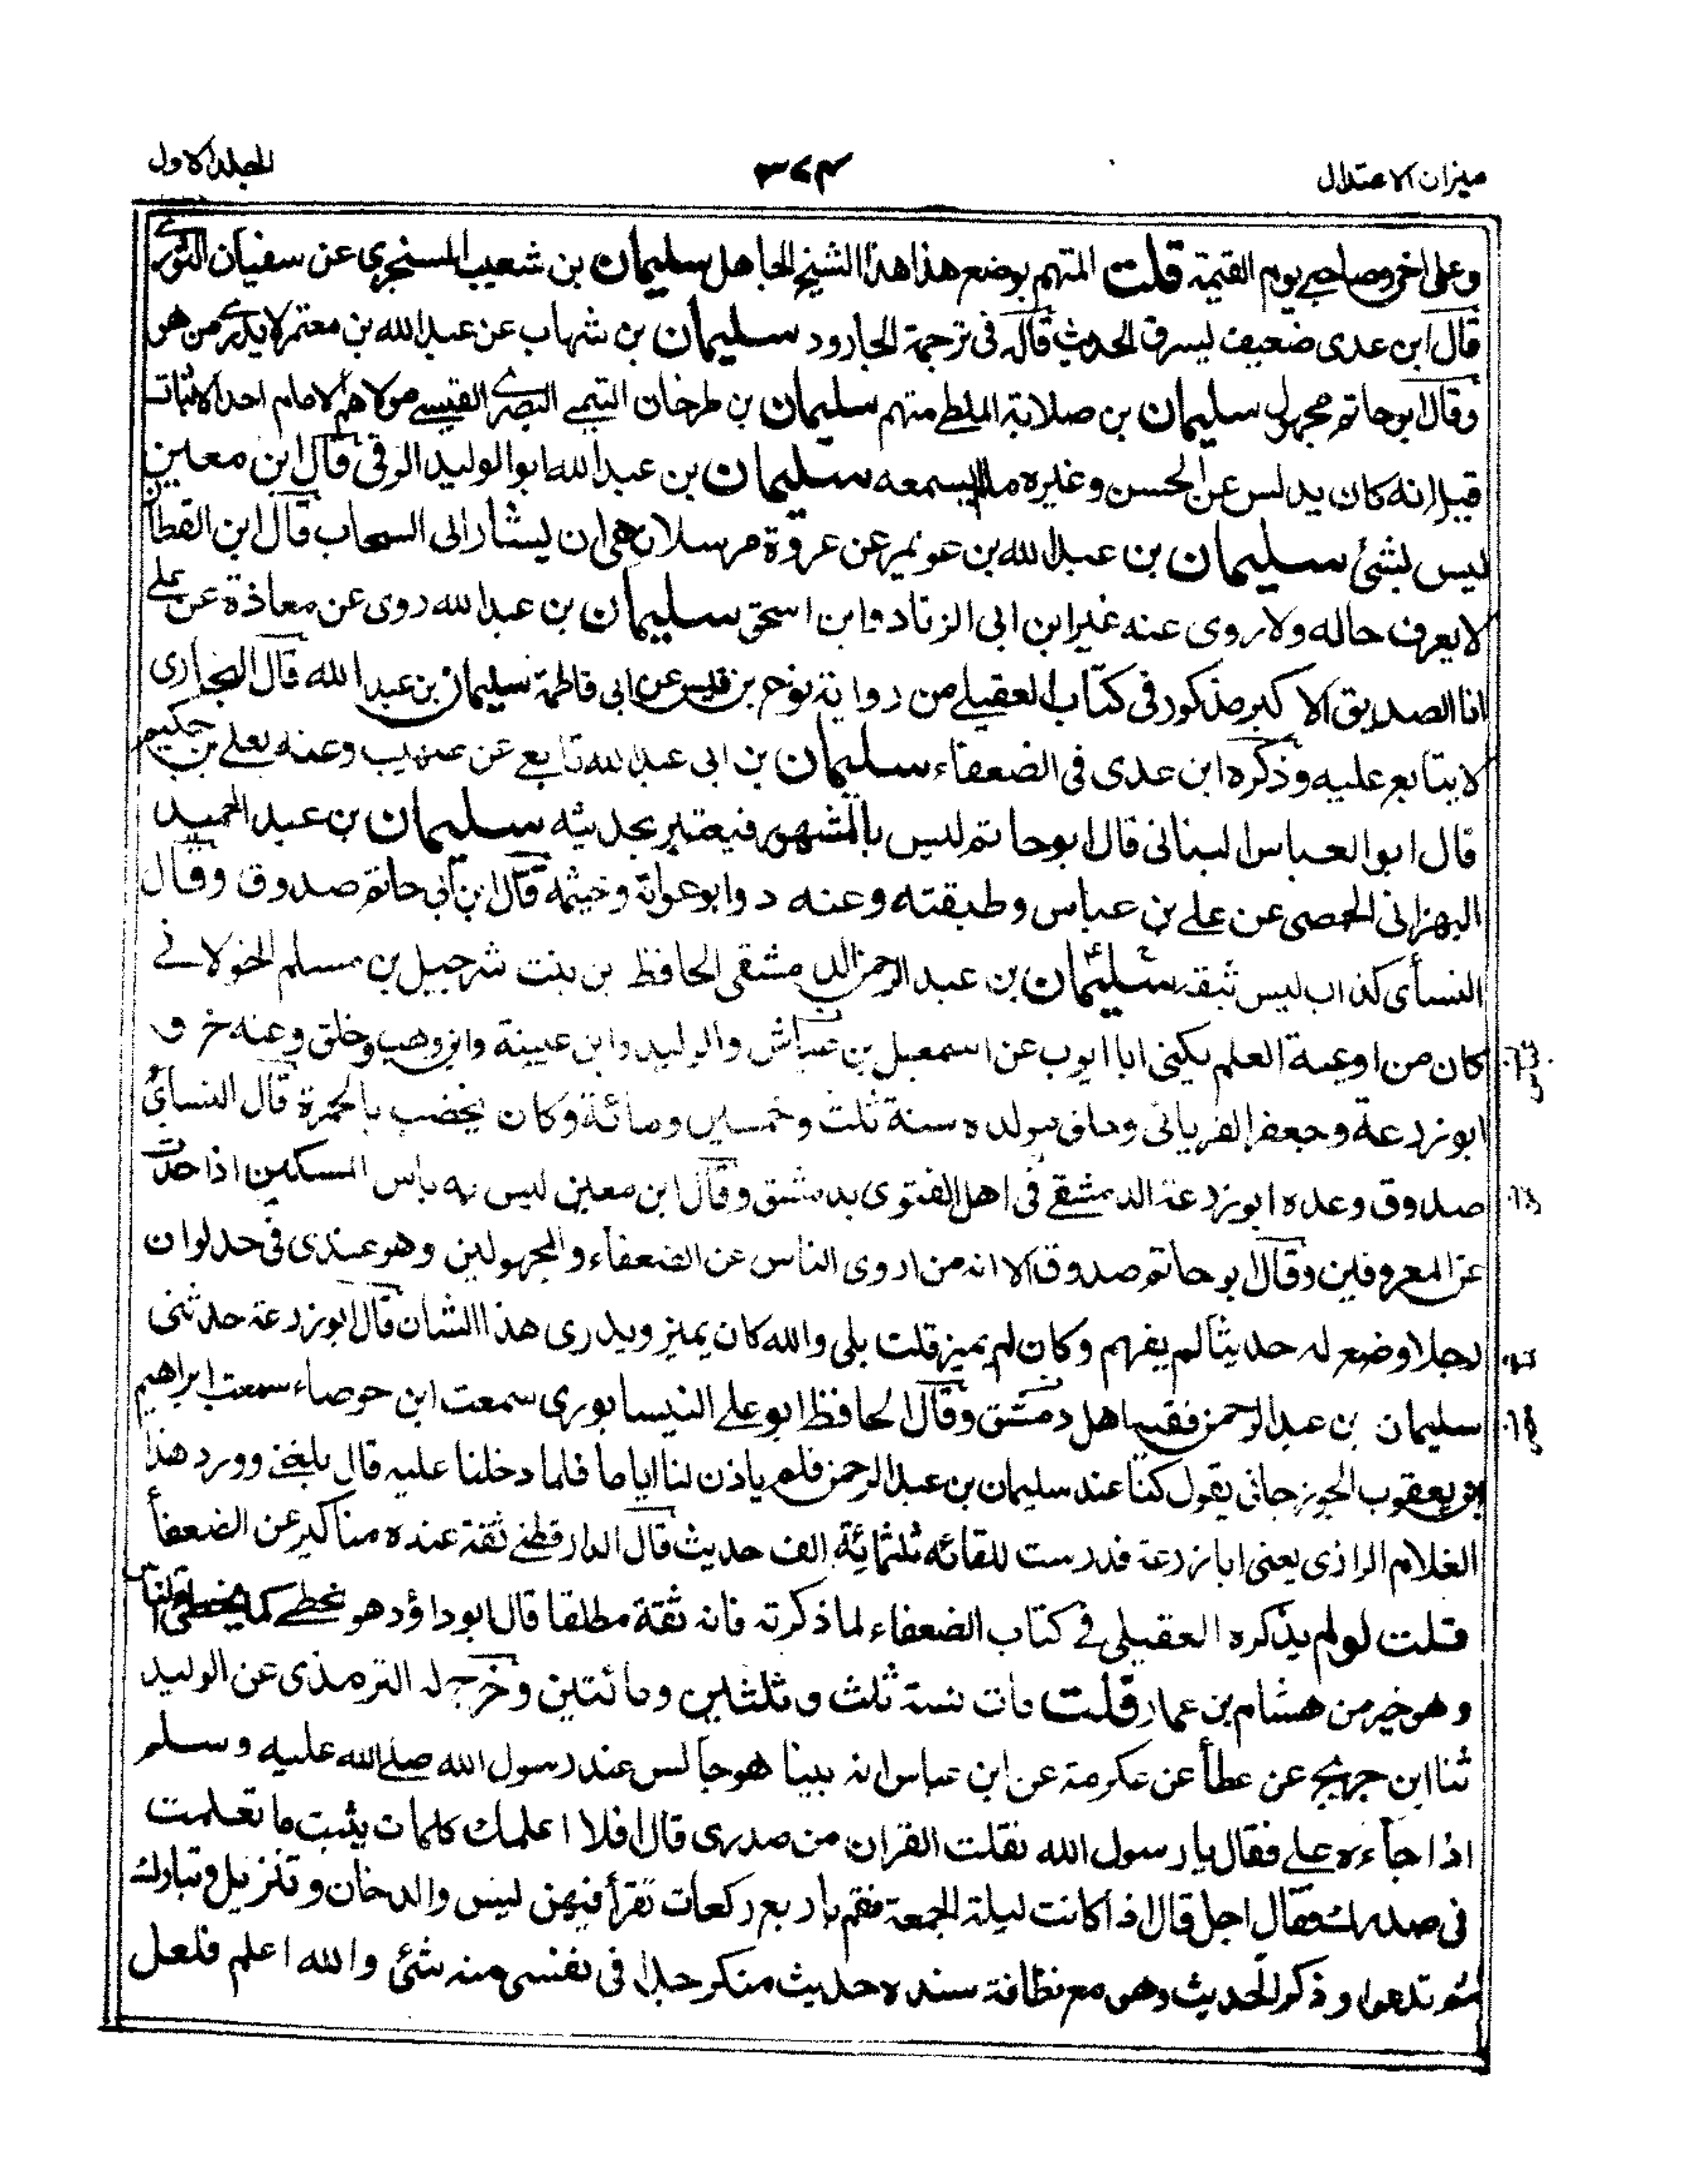 ميزان الاعتدال ٣٧٤ المجلد الاول
وعلى اخى وصاحبى يوم القيمة قلت المتهم بوضع هذا هذا الشيخ الجاهل سليمان بن شعيب السنجرى عن سفيان الثورى
قال ابن عدى ضعيف يسرق الحديث قاله فى ترجمة الجارود سليمان بن شهاب عن عبد الله بن معتمر لا يدرى من هو
وقال ابو حاتم مجهول سليمان بن صلابة الملطى متهم سليمان بن طرخان التيمى البصرى القيسى مولاهم الامام احد الاثبات
قيل انه كان يدلس عن الحسن وغيره ما لم يسمعه سليمان بن عبد الله ابو الوليد الرقى قال ابن معين
ليس بشئ سليمان بن عبد الله بن عويمر عن عروة مرسلا نهى ان يشار الى السحاب قال ابن القطان
لا يعرف حاله ولا روى عنه غير ابن ابى الزناد وابن اسحق سليمان بن عبد الله روى عن معاذة عن على
انا الصديق الاكبر مذكور فى كتاب العقيلى من رواية نوح بن قيس عن ابى فاطمة سليمان بن عبد الله قال البخارى
لا يتابع عليه وذكره ابن عدى فى الضعفاء سليمان بن ابى عبد الله تابع عن صهيب وعنه يعلى بن حكيم
قال ابو العباس البنانى قال ابو حاتم ليس بالمشهور فيعتبر بحديثه سليمان بن عبد الحميد
البهرانى الحمصى عن على بن عباس وطبقته وعنه د وابو عوانة وخيثمه قال ابن ابى حاتم صدوق وقال
النسأى كذاب ليس ثبقة سليمان بن عبد الرحمن الدمشقى الحافظ بن بنت شرحبيل بن مسلم الخولانى
كان من اوعية العلم يكنى ابا ايوب عن اسمعيل بن عياش والوليد وابن عيينة وابن وهب وخلق وعنه خ ف
ابو زرعة وجعفر الفريانى وخلق مولده سنة ثلث وخمسين ومائة وكان يخضب بالحمرة قال النسائى
صدوق وعده ابو زرعة الدمشقى فى اهل الفتوى بدمشق وقال ابن معين ليس به باس المسكين اذا حدث
عن المعروفين وقال ابو حاتم صدوق الا انه من اروى الناس عن الضعفاء والمجهولين وهو عندى فى حد لو ان
رجلا وضع له حديثا لم يفهم وكان لم يميز قلت بلى والله كان يميز ويدرى هذا الشان قال ابو زرعة حدثنى
سليمان بن عبد الرحمن فقيه اهل دمشق وقال الحافظ ابو على النيسابورى سمعت ابن حوصاء سمعت ابراهيم
بن يعقوب الجوزجانى يقول كنا عند سليمان بن عبد الرحمن فلم ياذن لنا اياما فلما دخلنا عليه قال بلغنى وورد هذا
الغلام الرازى يعنى ابا زرعة فدرست للقائه ثلثمائة الف حديث قال الدارقطنى ثقة عنده مناكير عن الضعفأ
قلت لو لم يذكره العقيلى فى كتاب الضعفاء لما ذكرته فانه ثقة مطلقا قال ابو داؤد هو يخطى كما يخطى الناس
وهو خير من هشام بن عمار قلت مات سنة ثلث وثلثين ومائتين وخرج له الترمذى عن الوليد
ثنا ابن جريج عن عطأ عن عكرمة عن ابن عباس انه بينا هو جالس عند رسول الله صلى الله عليه وسلم
اذا جاءه على فقال يا رسول الله نقلت القران من صدرى قال افلا اعلمك كلمات يثبت ما تعلمت
فى صدرك فقال اجل قال اذا كانت ليلة الجمعة فقم باربع ركعات تقرأ فيهن ليس والدخان وتنزيل وتبارك
ثم تدعوا وذكر الحديث وهو مع نظافة سنده حديث منكر جدا فى نفسى منه شئ والله اعلم فلعل